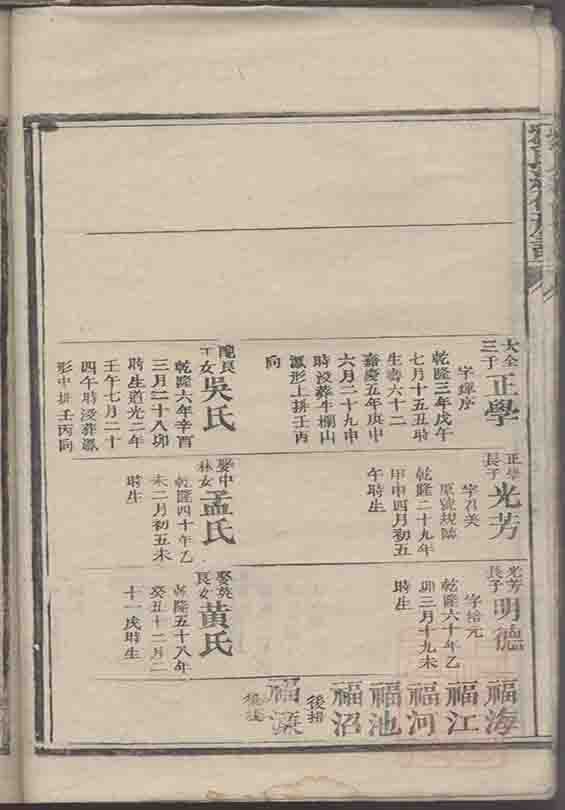 大全
三子
正學
字輝序
乾隆三年戊午
七月十五丑時
生壽六十二
嘉慶五年庚申
六月二十九申
時沒葬牛欄山
瓢形上拼壬丙
向
配良
工女
吳氏
乾隆六年辛酉
三月二十八卯
時生道光二年
壬午七月二十
四午時沒葬瓢
形中拼壬丙向
正學
長子
光芳
字召美
原號規臨
乾隆二十九年
甲申四月初五
午時生
娶中
林女
孟氏
乾隆四十年乙
未二月初五未
時生
光芳
長子
明德
字拾元
乾隆六十年乙
卯三月十九未
時生
娶英
良女
黄氏
乾隆五十八年
癸丑十二月二
十一戌時生
福海
福江
福河
福池
福沼
後招
福深